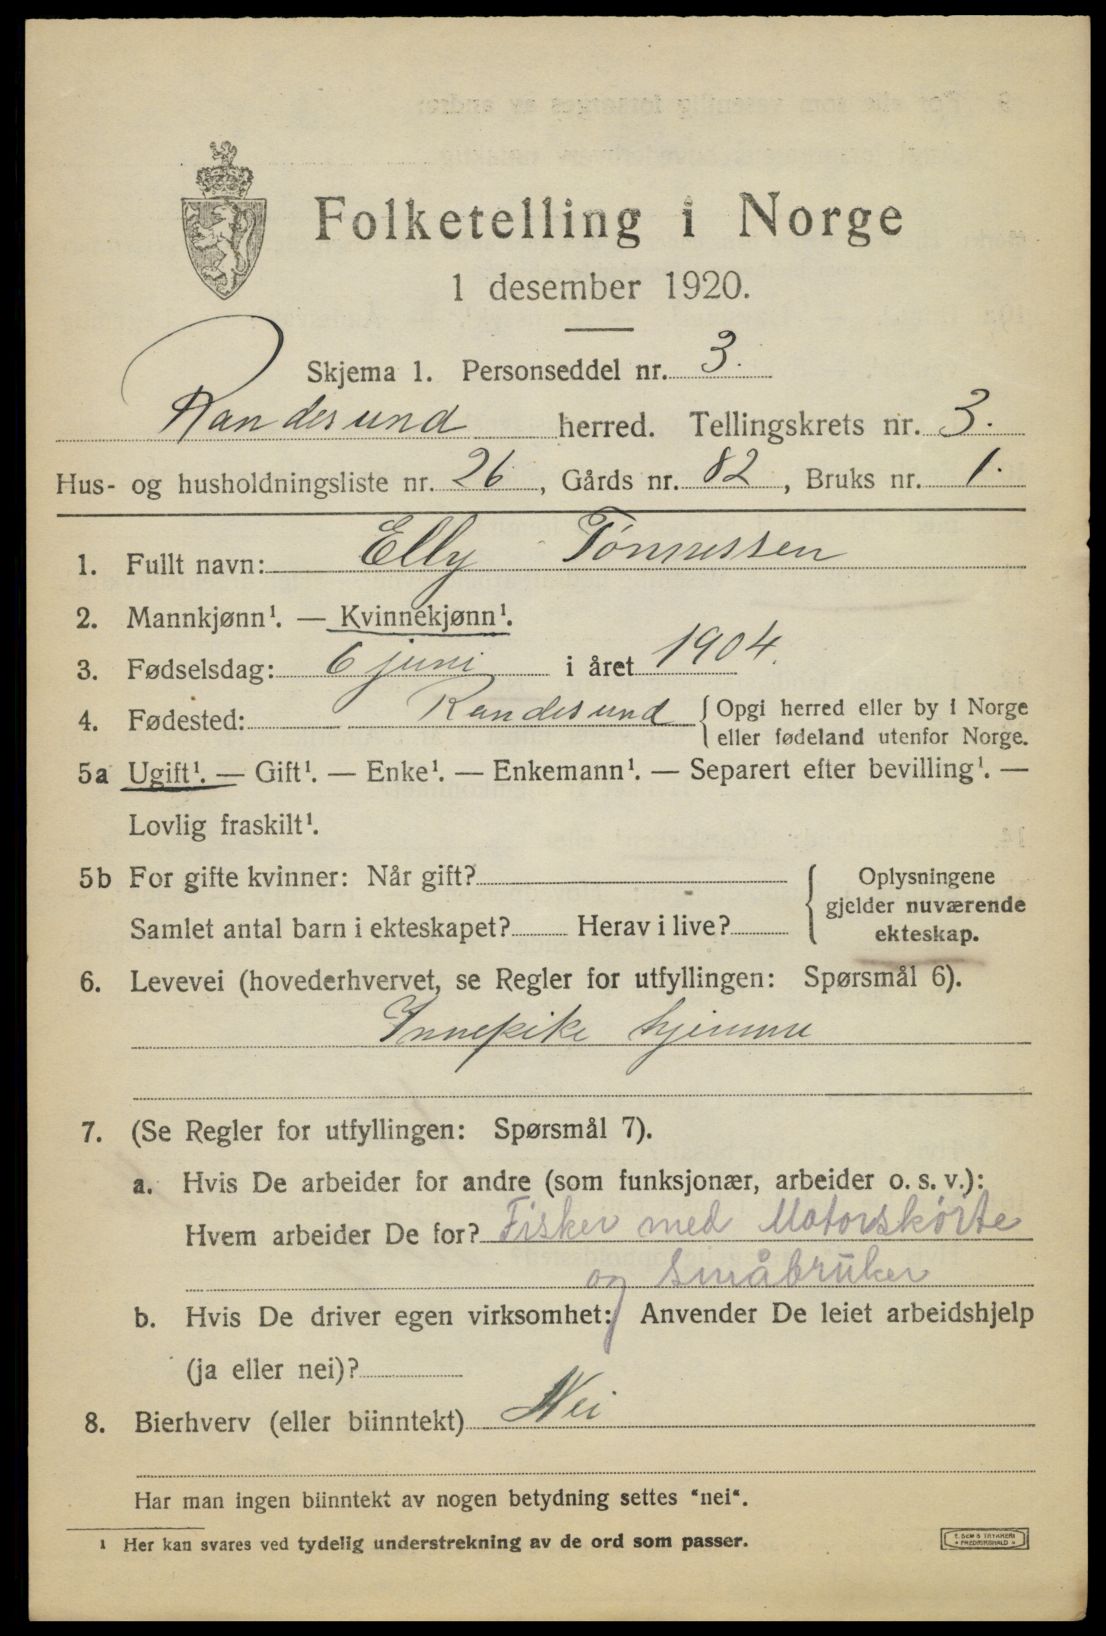 Folketelling i Norge
1 desember 1920.
Skjema 1. Personseddel nr. 3.
Randesund herred. Tellingskrets nr. 3.
Hus- og husholdningsliste nr. 26, Gårds nr. 82, Bruks nr. 1.
1. Fullt navn: Elly Tønnessen
2. Mannkjønn¹. — Kvinnekjønn¹.
3. Fødselsdag: 6 juni i året 1904.
4. Fødested: Randesund {Opgi herred eller by i Norge
eller fødeland utenfor Norge.
5a Ugift¹. — Gift¹. — Enke¹. — Enkemann¹. — Separert efter bevilling¹. —
Lovlig fraskilt¹.
5b For gifte kvinner: Når gift?
Samlet antal barn i ekteskapet? Herav i live?
Oplysningene
gjelder nuværende
ekteskap.
6. Levevei (hovederhvervet, se Regler for utfyllingen: Spørsmål 6).
Innepike hjemme
7. (Se Regler for utfyllingen: Spørsmål 7).
a. Hvis De arbeider for andre (som funksjonær, arbeider o. s. v.):
Hvem arbeider De for? Fisker med Motorskøite
og småbruker
b. Hvis De driver egen virksomhet: Anvender De leiet arbeidshjelp
(ja eller nei)?
8. Bierhverv (eller biinntekt) Nei
Har man ingen biinntekt av nogen betydning settes "nei".
¹ Her kan svares ved tydelig understrekning av de ord som passer.
E. SEM'S TRYKKERI
FREDRIKSHALD